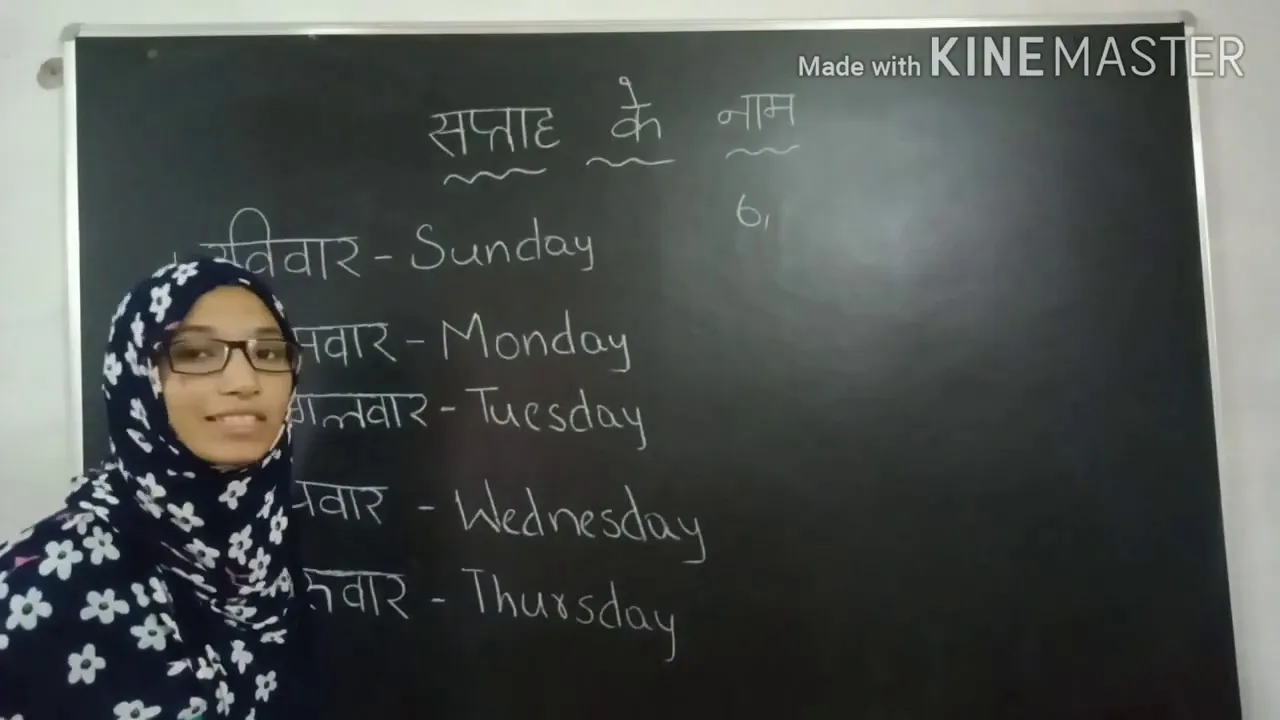 Made with KINEMASTER
सप्ताह के नाम
6,
रविवार - Sunday
मवार - Monday
गलवार - Tuesday
वार - Wednesday
रूवार - Thursday